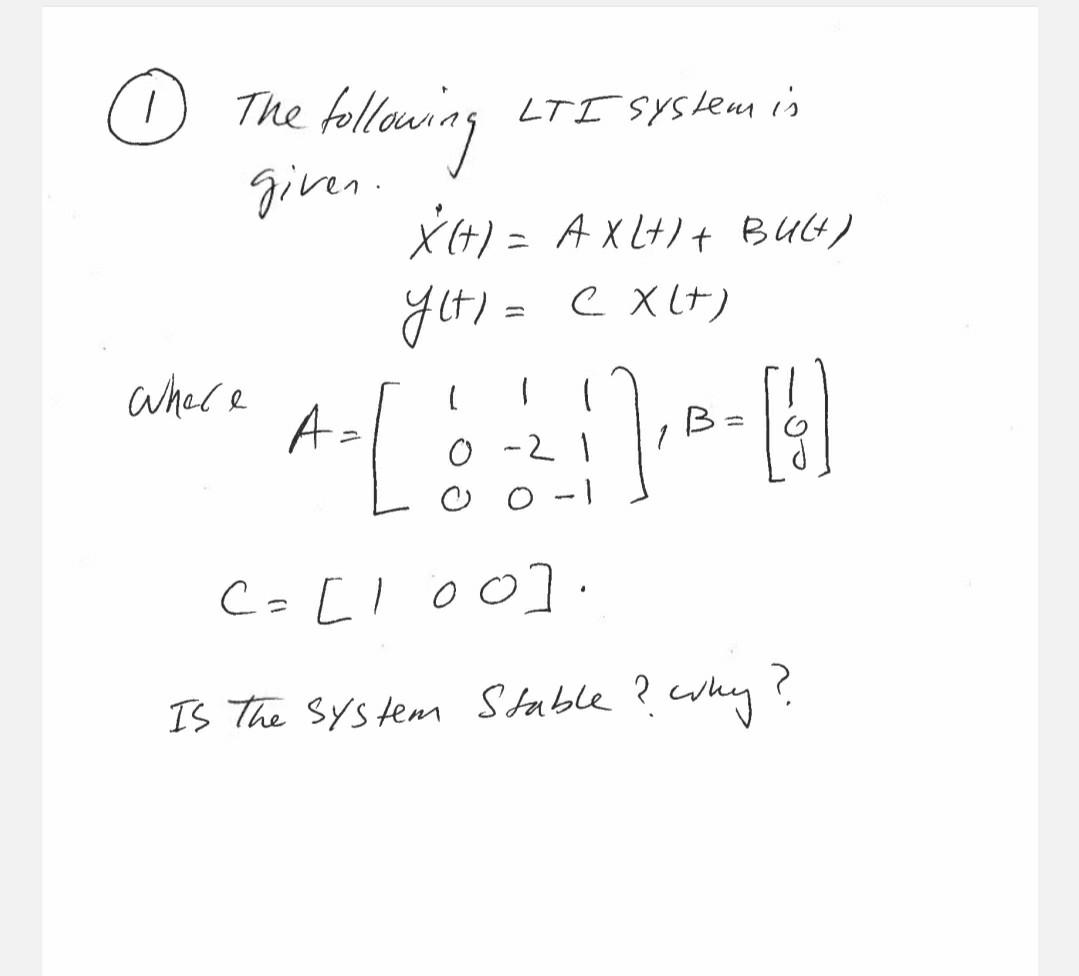 ① The following LTI system is
given.
ẋ(t) = A X(t) + B u(t)
y(t) = C X(t)
where A = [ 1 1 1
0 -2 1
0 0 -1 ], B = [ 1
0
0 ]
C = [1 0 0].
Is The system Stable? why?